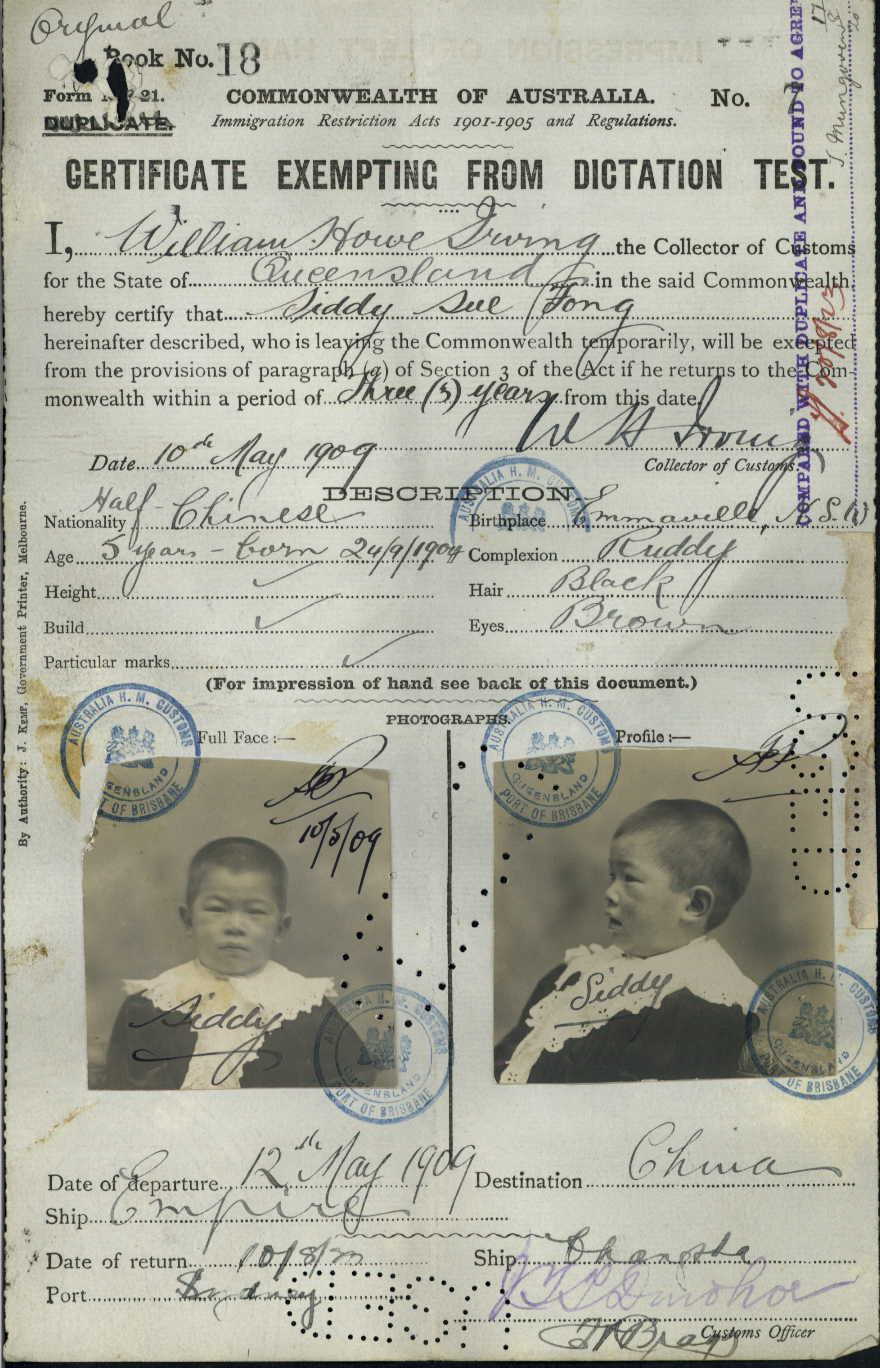 Original
Book No. 18
Form No. 21. COMMONWEALTH OF AUSTRALIA. No.
DUPLICATE. Immigration Restriction Acts 1901-1905 and Regulations.
CERTIFICATE EXEMPTING FROM DICTATION TEST.
I, William Howe Irving the Collector of Customs
for the State of Queensland in the said Commonwealth,
hereby certify that Siddy Sue Fong
hereinafter described, who is leaving the Commonwealth temporarily, will be excepted
from the provisions of paragraph (a) of Section 3 of the Act if he returns to the Com-
monwealth within a period of Three (3) years from this date.
W H Irving
Date 10th May 1909 Collector of Customs.
DESCRIPTION.
Nationality Half-Chinese Birthplace Emmaville, N.S.W
Age 5 years - born 24/9/1904 Complexion Ruddy
Height Hair Black
Build Eyes Brown
Particular marks
(For impression of hand see back of this document.)
PHOTOGRAPHS.
Full Face :— Profile :—
10/5/09
Siddy
Siddy
Date of departure 12th May 1909 Destination China
Ship Empire
Date of return 10/8/23 Ship Changsha
Port Sydney
Customs Officer
By Authority: J. KEMP, Government Printer, Melbourne.
COMPARED WITH DUPLICATE AND FOUND TO AGREE
AUSTRALIA H. M. CUSTOMS
QUEENSLAND
PORT OF BRISBANE
AUSTRALIA H. M. CUSTOMS
QUEENSLAND
PORT OF BRISBANE
AUSTRALIA H. M. CUSTOMS
QUEENSLAND
PORT OF BRISBANE
AUSTRALIA H. M. CUSTOMS
QUEENSLAND
PORT OF BRISBANE
AUSTRALIA H. M. CUSTOMS